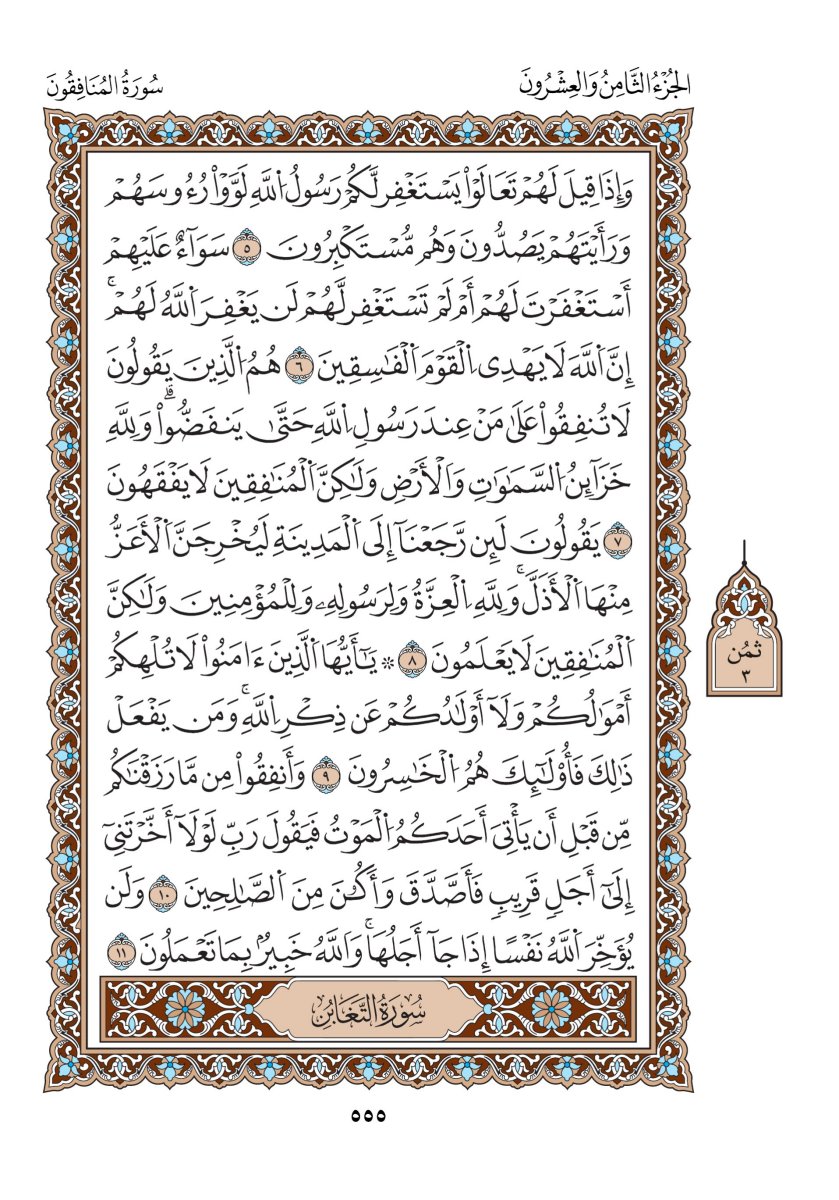 الجُزْءُ الثَّامِنُ وَالعِشْرُونَ
سُورَةُ المُنَافِقُونَ
وَإِذَا قِيلَ لَهُمْ تَعَالَوْاْ يَسْتَغْفِر لَّكُمْ رَسُولُ اُ۬للَّهِ لَوَّوْاْ رُءُوسَهُمْ
وَرَأَيْتَهُمْ يَصُدُّونَ وَهُم مُّسْتَكْبِرُونَ ٥ سَوَآءٌ عَلَيْهِمْ
أَسْتَغْفَرْتَ لَهُمْ أَمْ لَمْ تَسْتَغْفِر لَّهُمْ لَن يَغْفِرَ اَ۬للَّهُ لَهُمْۚ
إِنَّ اَ۬للَّهَ لَا يَهْدِى اِ۬لْقَوْمَ اَ۬لْفَٰسِقِينَ ٦ هُمُ اُ۬لَّذِينَ يَقُولُونَ
لَا تُنفِقُواْ عَلَىٰ مَنْ عِندَ رَسُولِ اِ۬للَّهِ حَتَّىٰ يَنفَضُّواْۗ وَلِلَّهِ
خَزَآئِنُ اُ۬لسَّمَٰوَٰتِ وَاَ۬لْأَرْضِ وَلَٰكِنَّ اَ۬لْمُنَٰفِقِينَ لَا يَفْقَهُونَ
٧ يَقُولُونَ لَئِن رَّجَعْنَآ إِلَى اَ۬لْمَدِينَةِ لَيُخْرِجَنَّ اَ۬لْأَعَزُّ
مِنْهَا اَ۬لْأَذَلَّۚ وَلِلَّهِ اِ۬لْعِزَّةُ وَلِرَسُولِهِۦ وَلِلْمُؤْمِنِينَ وَلَٰكِنَّ
اَ۬لْمُنَٰفِقِينَ لَا يَعْلَمُونَ ٨ ۞ يَٰٓأَيُّهَا اَ۬لَّذِينَ ءَامَنُواْ لَا تُلْهِكُمْ
أَمْوَٰلُكُمْ وَلَآ أَوْلَٰدُكُمْ عَن ذِكْرِ اِ۬للَّهِۚ وَمَن يَفْعَلْ
ذَٰلِكَ فَأُوْلَٰٓئِكَ هُمُ اُ۬لْخَٰسِرُونَ ٩ وَأَنفِقُواْ مِن مَّا رَزَقْنَٰكُم
مِّن قَبْلِ أَن يَأْتِىَ أَحَدَكُمُ اُ۬لْمَوْتُ فَيَقُولَ رَبِّ لَوْلَآ أَخَّرْتَنِىٓ
إِلَىٰٓ أَجَلٍ قَرِيبٍ فَأَصَّدَّقَ وَأَكُونَ مِنَ اَ۬لصَّٰلِحِينَ ١٠ وَلَن
يُؤَخِّرَ اَ۬للَّهُ نَفْسًا إِذَا جَآ أَجَلُهَاۚ وَاَ۬للَّهُ خَبِيرٌۢ بِمَا تَعْمَلُونَ ١١
ثُمُن
٣
سُورَةُ التَّغَابُنِ
٥٥٥